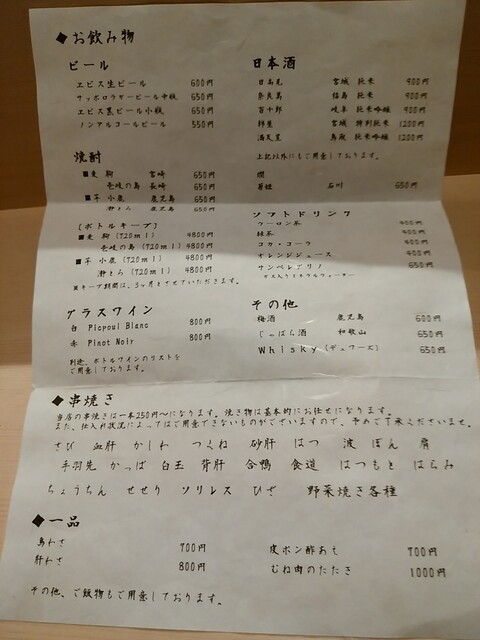 ◆お飲み物
ビール
ヱビス生ビール 600円
サッポロラガービール中瓶 650円
ヱビス黒ビール小瓶 650円
ノンアルコールビール 550円
焼酎
■麦 駒 宮崎 650円
壱岐の島 長崎 650円
■芋 小鹿 鹿児島 650円
鹿児島 650円
[ボトルキープ]
■麦 駒 (720ml) 4800円
壱岐の島 (720ml) 4800円
■芋 小鹿 (720ml) 4800円
(720ml) 4800円
※キープ期間は、3ヶ月とさせていただきます。
グラスワイン
白 Picpoul Blanc 800円
赤 Pinot Noir 800円
別途、ボトルワインのリストを
ご用意しております。
日本酒
日高見 宮城 純米 900円
奈良萬 福島 純米 900円
百十郎 岐阜 純米吟醸 900円
宮城 特別純米 1200円
満天星 鳥取 純米吟醸 1200円
上記以外にもご用意しております。
燗
石川 650円
ソフトドリンク
ウーロン茶 400円
緑茶 400円
コカ・コーラ 400円
オレンジジュース 400円
サンペレグリノ 650円
ガス入りミネラルウォーター
その他
梅酒 鹿児島 600円
じゃばら酒 和歌山 650円
Whisky(デュワーズ) 650円
◆串焼き
当店の串焼きは一本250円〜になります。焼き物は基本的にお任せになります。
また、仕入れ状況によってはご用意できないものがございますので、予めご了承くださいませ。
さび 血肝 かしわ つくね 砂肝 はつ 波 ぼん 肩
手羽先 かっぱ 白玉 背肝 合鴨 食道 はつもと はらみ
ちょうちん せせり ソリレス ひざ 野菜焼き各種
◆一品
鳥わさ 700円
肝わさ 800円
皮ポン酢あえ 700円
むね肉のたたき 1000円
その他、ご飯物もご用意しております。